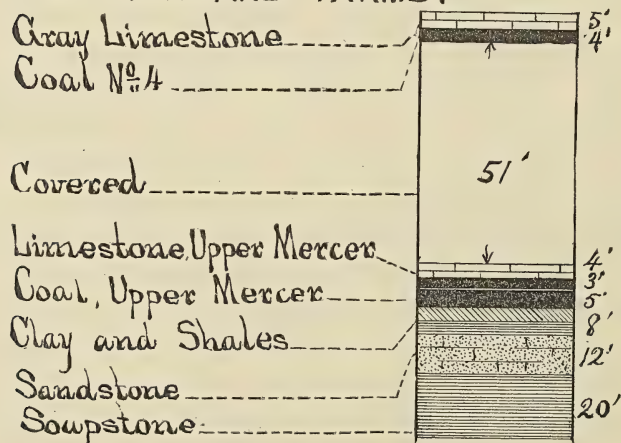 Gray Limestone 5'
Coal No. 4 4'
Covered 51'
Limestone, Upper Mercer 4'
3'
Coal, Upper Mercer 5'
Clay and Shales 8'
Sandstone 12'
Soapstone 20'